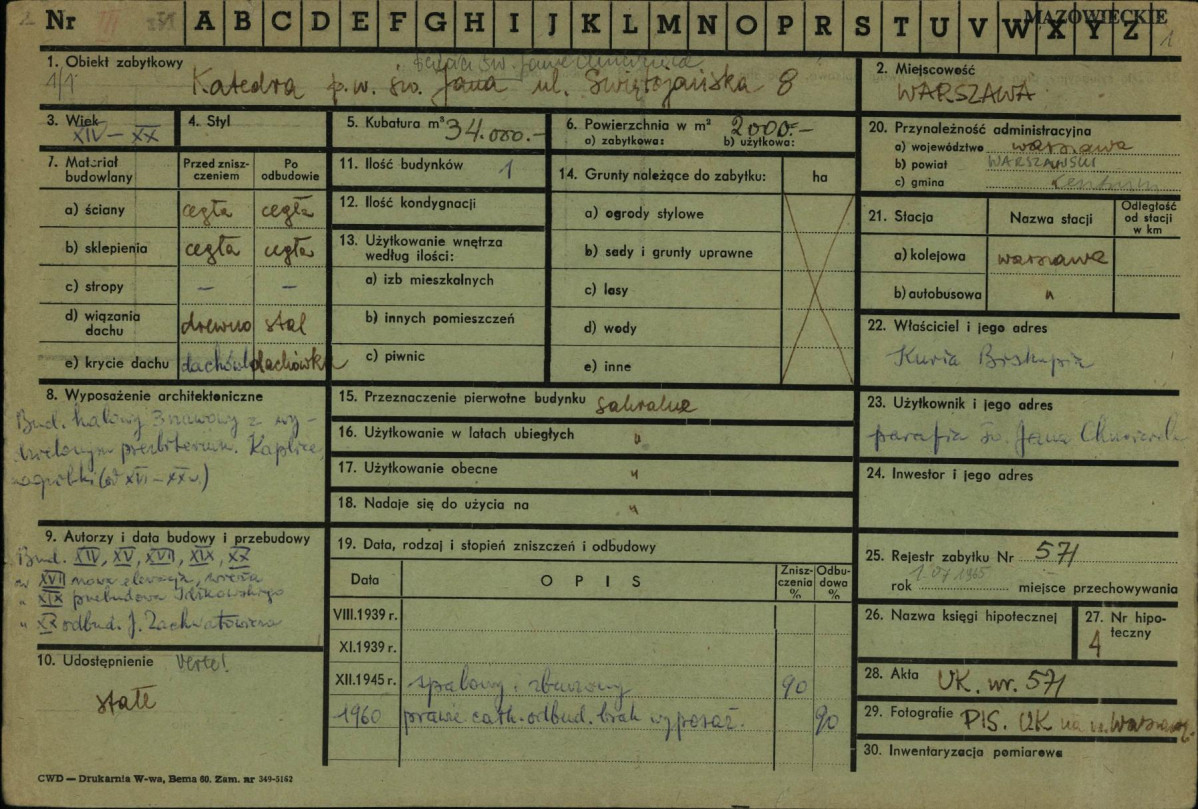 2 Nr III A B C D E F G H I J K L M N O P R S T U V W X Y Z MAZOWIECKIE 1
1. Obiekt zabytkowy
1/1 Katedra p.w. św. Jana ul. Świętojańska 8
2. Miejscowość
WARSZAWA
3. Wiek
XIV – XX
4. Styl
5. Kubatura m³ 34.000.-
6. Powierzchnia w m² 2000.-
a) zabytkowa: b) użytkowa:
20. Przynależność administracyjna
a) województwo warszawa
b) powiat WARSZAWSKI
c) gmina Centrum
7. Materiał budowlany
Przed zniszczeniem
Po odbudowie
a) ściany cegła cegła
b) sklepienia cegła cegła
c) stropy – –
d) wiązania dachu drewno stal
e) krycie dachu dachówka
11. Ilość budynków 1
12. Ilość kondygnacji
13. Użytkowanie wnętrza
według ilości:
a) izb mieszkalnych
b) innych pomieszczeń
c) piwnic
14. Grunty należące do zabytku: ha
a) ogrody stylowe
b) sady i grunty uprawne
c) lasy
d) wody
e) inne
21. Stacja Nazwa stacji Odległość od stacji w km
a) kolejowa warszawa
b) autobusowa "
22. Właściciel i jego adres
Kuria Biskupia
8. Wyposażenie architektoniczne
Bud. halowy 3 nawowy z wy-
dzielonym prezbiterium. Kaplice,
nagrobki (od XVI – XX w)
15. Przeznaczenie pierwotne budynku sakralne
16. Użytkowanie w latach ubiegłych "
17. Użytkowanie obecne "
18. Nadaje się do użycia na "
23. Użytkownik i jego adres
parafia św. Jana Chrzciciela
24. Inwestor i jego adres
9. Autorzy i data budowy i przebudowy
Bud. XIV, XV, XVII, XIX, XX
w XVII nowa elewacja, wieża
" XIX przebudowa Idzikowskiego
" XX odbud. J. Zachwatowicza
10. Udostępnienie Verte!
stałe
19. Data, rodzaj i stopień zniszczeń i odbudowy
Data OPIS Zniszczenia % Odbudowa %
VIII.1939 r.
XI.1939 r.
XII.1945 r. spalony i zburzony 90
1960 prawie całk. odbud. brak wyposaż. 90
25. Rejestr zabytku Nr 571
rok 1.07.1965 miejsce przechowywania
26. Nazwa księgi hipotecznej
27. Nr hipoteczny
4
28. Akta UK. nr. 571
29. Fotografie PIS. UK na m. Warszaw.
30. Inwentaryzacja pomiarowa
CWD — Drukarnia W-wa, Bema 60. Zam. nr 349-5162